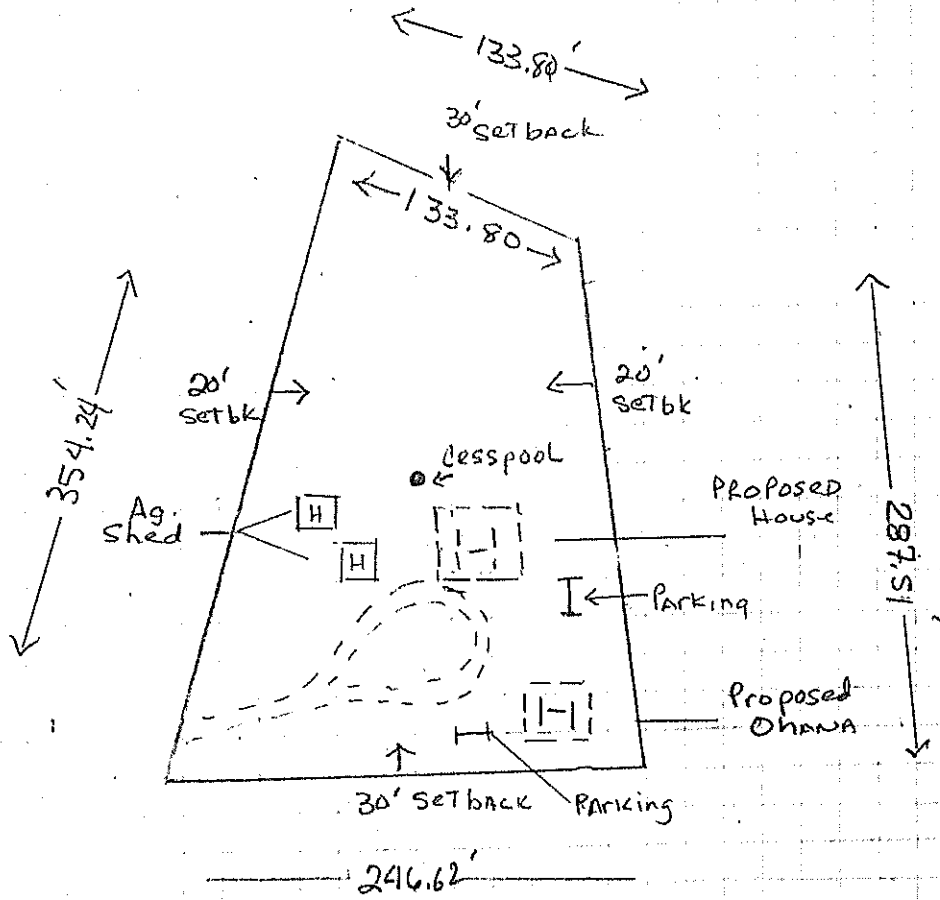 133.80'
30' SETBACK
133.80
20'
SETBK
20'
SETBK
354.24'
287.51'
Cesspool
Ag.
Shed
H
H
H
PROPOSED
House
Parking
H
Proposed
OHANA
30' SETBACK
Parking
246.62'